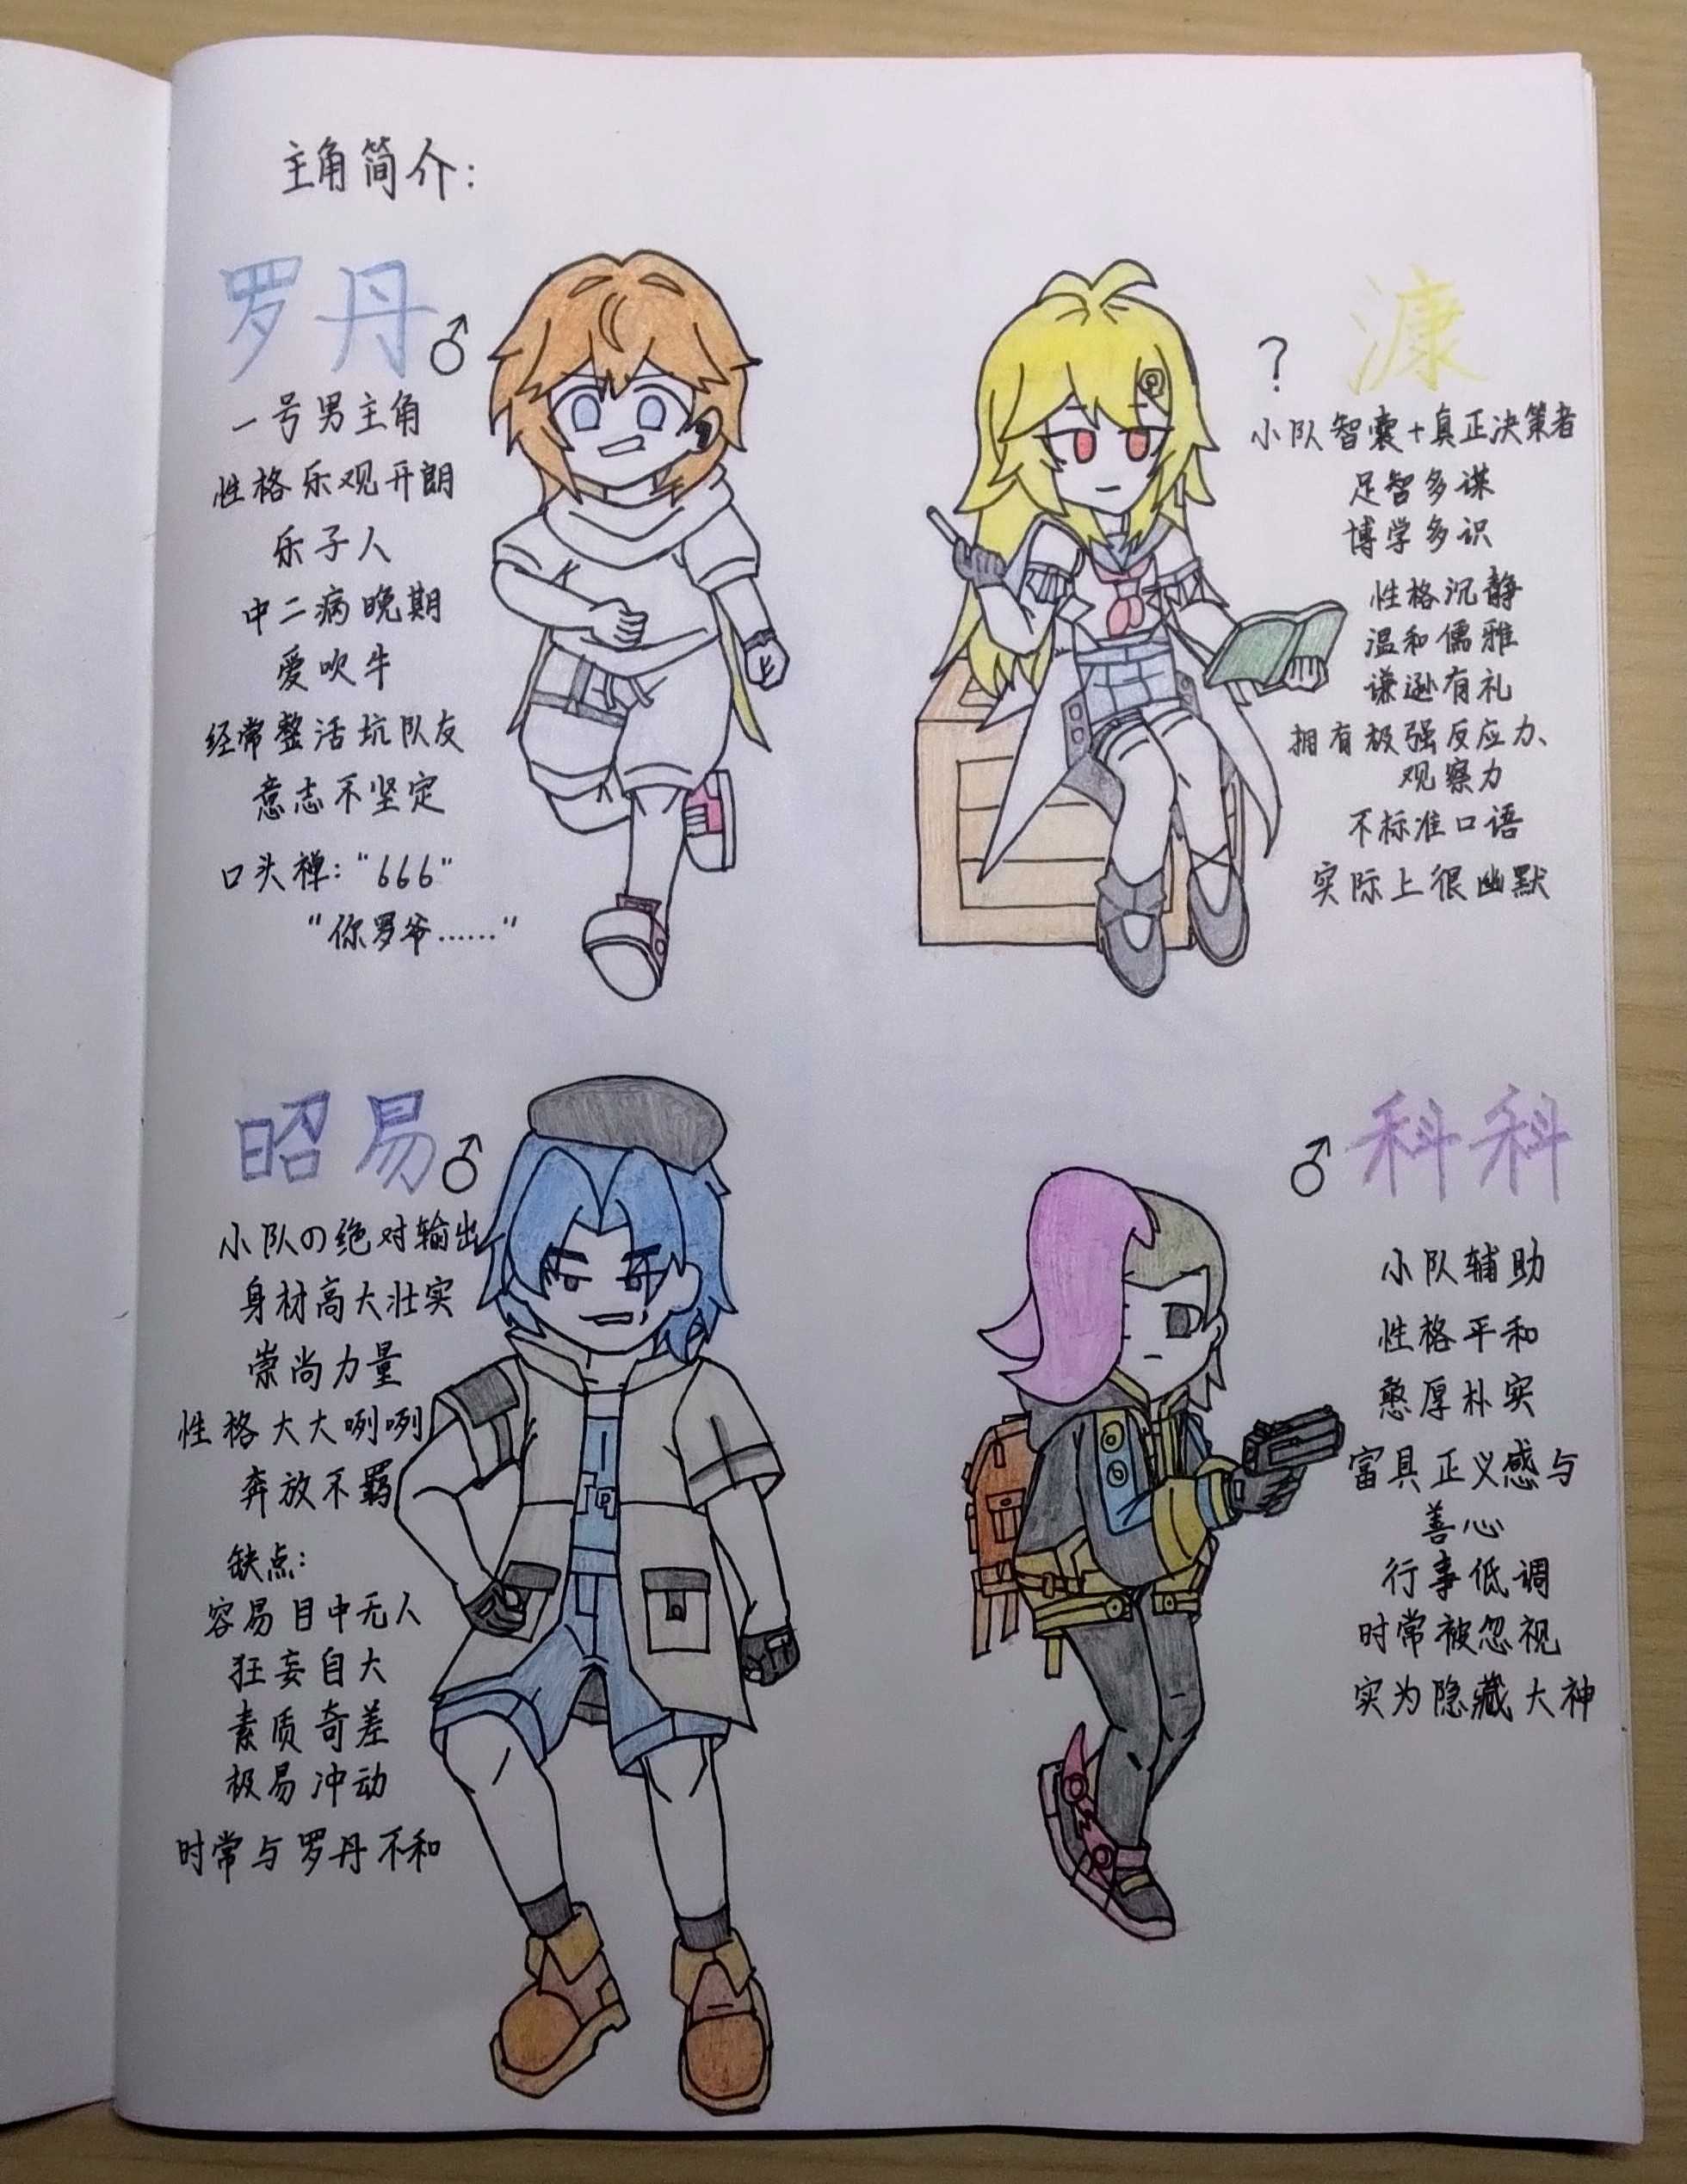 主角简介：
罗丹♂
一号男主角
性格乐观开朗
乐子人
中二病晚期
爱吹牛
经常整活坑队友
意志不坚定
口头禅：“666”
“你罗爷……”
？漮
小队智囊+真正决策者
足智多谋
博学多识
性格沉静
温和儒雅
谦逊有礼
拥有极强反应力、
观察力
不标准口语
实际上很幽默
昭易♂
小队の绝对输出
身材高大壮实
崇尚力量
性格大大咧咧
奔放不羁
缺点：
容易目中无人
狂妄自大
素质奇差
极易冲动
时常与罗丹不和
♂科科
小队辅助
性格平和
憨厚朴实
富具正义感与
善心
行事低调
时常被忽视
实为隐藏大神